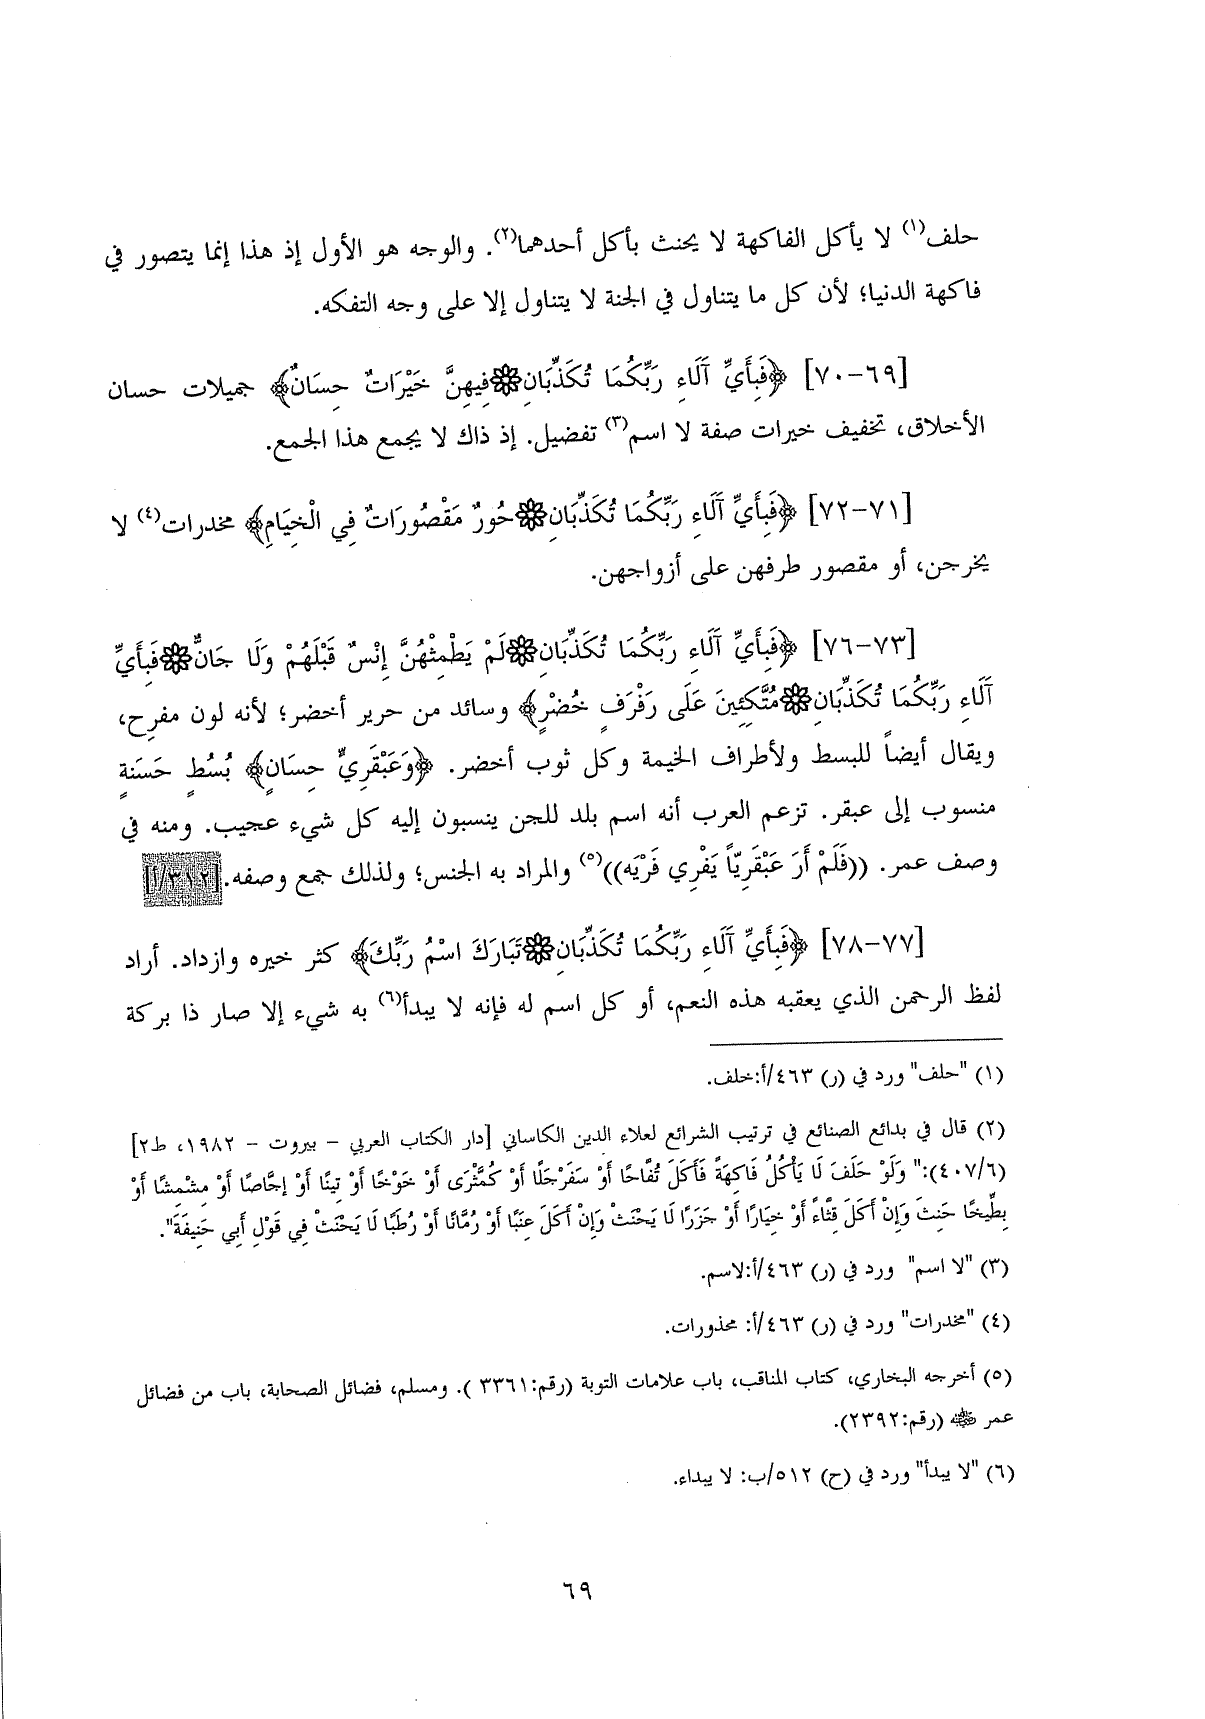 حلف(١) لا يأكل الفاكهة لا يحنث بأكل أحدهما(٢). والوجه هو الأول إذ هذا إنما يتصور في
فاكهة الدنيا؛ لأن كل ما يتناول في الجنة لا يتناول إلا على وجه التفكه.
[٦٩-٧٠] ﴿فَبِأَيِّ آلَاءِ رَبِّكُمَا تُكَذِّبَانِ۞فِيهِنَّ خَيْرَاتٌ حِسَانٌ﴾ جميلات حسان
الأخلاق، تخفيف خيرات صفة لا اسم(٣) تفضيل. إذ ذاك لا يجمع هذا الجمع.
[٧١-٧٢] ﴿فَبِأَيِّ آلَاءِ رَبِّكُمَا تُكَذِّبَانِ۞حُورٌ مَقْصُورَاتٌ فِي الْخِيَامِ﴾ مخدرات(٤) لا
يخرجن، أو مقصور طرفهن على أزواجهن.
[٧٣-٧٦] ﴿فَبِأَيِّ آلَاءِ رَبِّكُمَا تُكَذِّبَانِ۞لَمْ يَطْمِثْهُنَّ إِنْسٌ قَبْلَهُمْ وَلَا جَانٌّ۞فَبِأَيِّ
آلَاءِ رَبِّكُمَا تُكَذِّبَانِ۞مُتَّكِئِينَ عَلَى رَفْرَفٍ خُضْرٍ﴾ وسائد من حرير أخضر؛ لأنه لون مفرح،
ويقال أيضاً للبسط ولأطراف الخيمة وكل ثوب أخضر. ﴿وَعَبْقَرِيٍّ حِسَانٍ﴾ بُسُطٍ حَسَنَةٍ
منسوب إلى عبقر. تزعم العرب أنه اسم بلد للجن ينسبون إليه كل شيء عجيب. ومنه في
وصف عمر. ((فَلَمْ أَرَ عَبْقَرِيّاً يَفْرِي فَرْيَه))(٥) والمراد به الجنس؛ ولذلك جمع وصفه.[٣١٢/أ]
[٧٧-٧٨] ﴿فَبِأَيِّ آلَاءِ رَبِّكُمَا تُكَذِّبَانِ۞تَبَارَكَ اسْمُ رَبِّكَ﴾ كثر خيره وازداد. أراد
لفظ الرحمن الذي يعقبه هذه النعم، أو كل اسم له فإنه لا يبدأ(٦) به شيء إلا صار ذا بركة
(١) "حلف" ورد في (ر) ٤٦٣/أ:خلف.
(٢) قال في بدائع الصنائع في ترتيب الشرائع لعلاء الدين الكاساني [دار الكتاب العربي – بيروت – ١٩٨٢، ط٢]
(٤٠٧/٦):" وَلَوْ حَلَفَ لَا يَأْكُلُ فَاكِهَةً فَأَكَلَ تُفَّاحًا أَوْ سَفَرْجَلًا أَوْ كُمَّثْرَى أَوْ خَوْخًا أَوْ تِينًا أَوْ إجَّاصًا أَوْ مِشْمِشًا أَوْ
بِطِّيخًا حَنِثَ وَإِنْ أَكَلَ قِثَّاءً أَوْ خِيَارًا أَوْ جَزَرًا لَا يَحْنَثْ وَإِنْ أَكَلَ عِنَبًا أَوْ رُمَّانًا أَوْ رُطَبًا لَا يَحْنَثْ فِي قَوْلِ أَبِي حَنِيفَةَ".
(٣) "لا اسم" ورد في (ر) ٤٦٣/أ:لاسم.
(٤) "مخدرات" ورد في (ر) ٤٦٣/أ: محذورات.
(٥) أخرجه البخاري، كتاب المناقب، باب علامات التوبة (رقم:٣٣٦١ ). ومسلم، فضائل الصحابة، باب من فضائل
عمر ﷺ (رقم:٢٣٩٢).
(٦) "لا يبدأ" ورد في (ح) ٥١٢/ب: لا يبداء.
٦٩